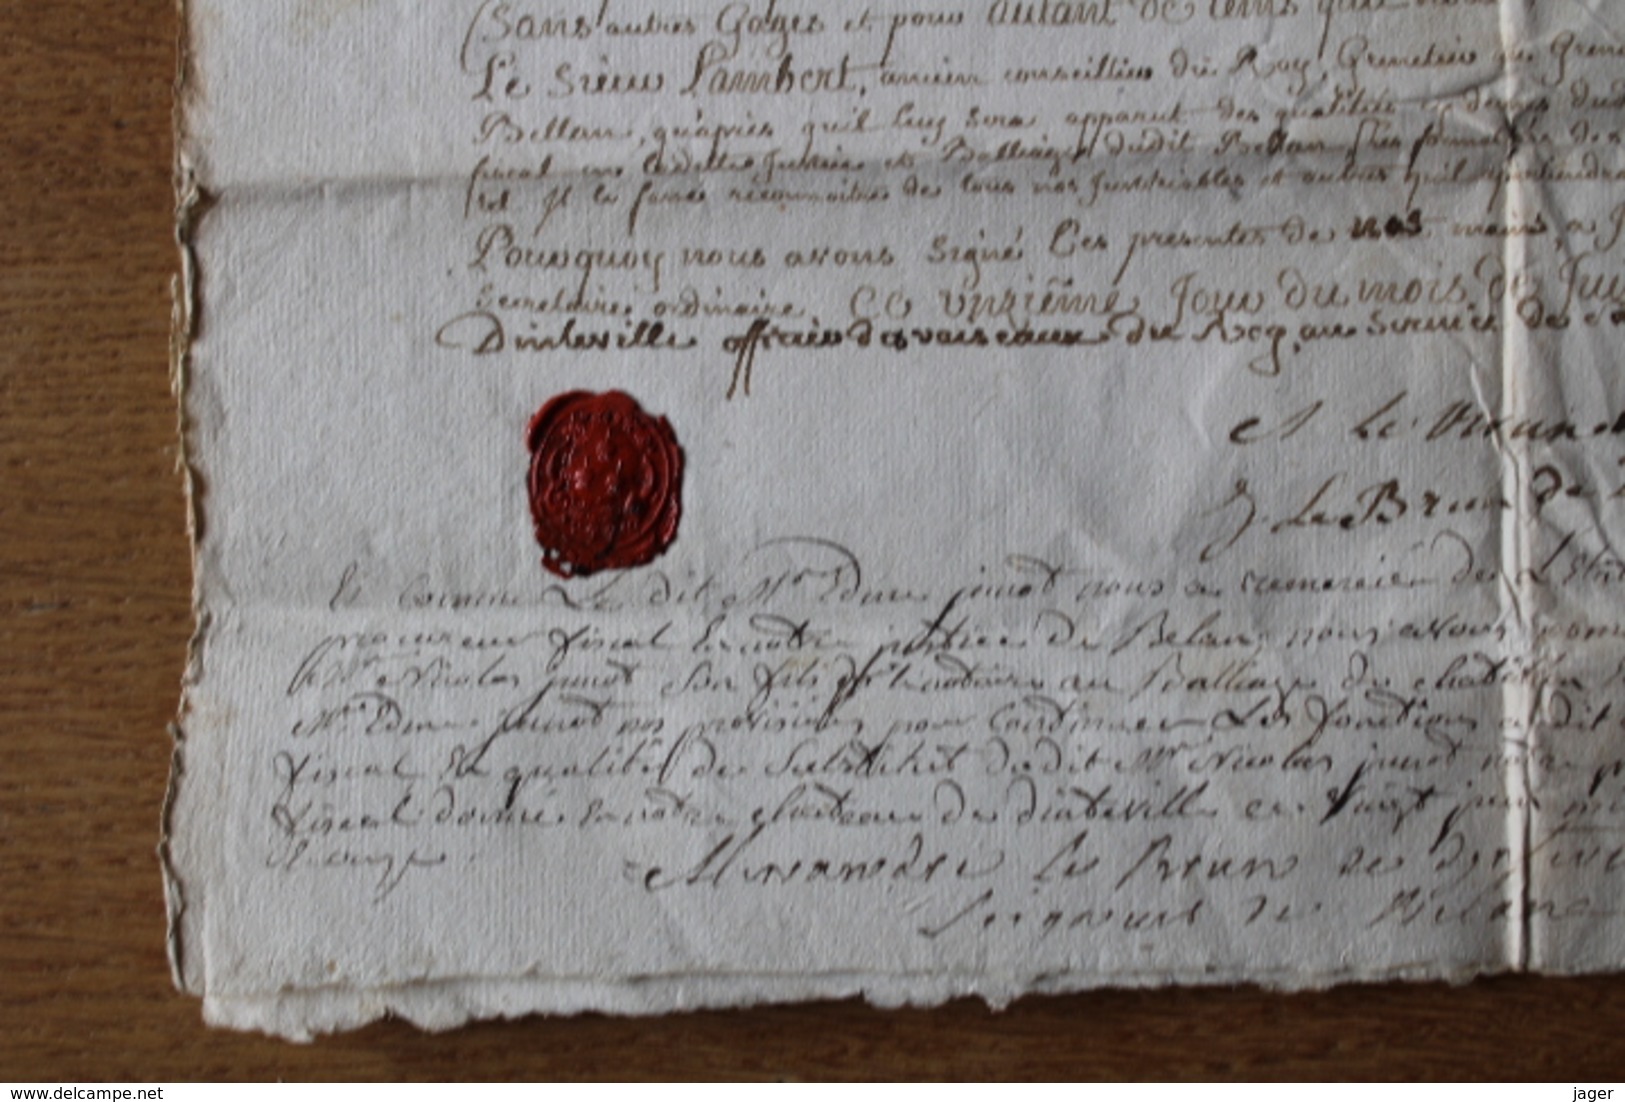 Sans autres Gages et pour autant de tems qu'il
Le Sieur Lambert, ancien conseillier du Roy, Grenetier au Gren
Bellan, qu'après qu'il luy sera apparut des qualités
fiscal en la ditte Justice et Balliage dudit Bellan
sel. Il le fasse reconnoitre de tous nos Justiciables et autres qu'il
Pourquoy nous avons signé Ces presentes de nos mains, a
Secretaire ordinaire. Ce onzième Jour du mois de Jui
Dinteville officier des vaiseaux du Roy, au service de
A Le Brun
J. Le Brun De
Et Comme Le dit Mr Edme junot nous a remercié de L'état
procureur fiscal En notre justice de Belan, nous avons
Mr Nicolas junot son fils notaire au Balliage de chatillon
Mr Edme junot nos provisions pour Continuer Les fonctions
fiscal En qualité de Substitut dudit Mr Nicolas junot notre
fiscal donné En notre chateau de dinteville ce vingt juin
= Alexandre Le Brun de dinteville
Seigneur de Belan
jager